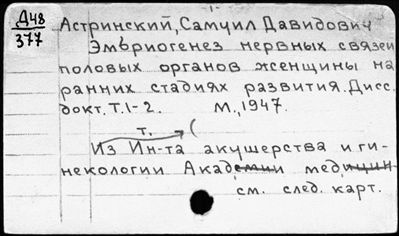 Д48
377
Астринский, Самуил Давидович
Эмбриогенез нервных связей
половых органов женщины на
ранних стадиях развития. Дисс.
докт. Т.1-2. М., 1947.
т. (
Из Ин-та акушерства и ги-
некологии Академии медицин
см. след. карт.